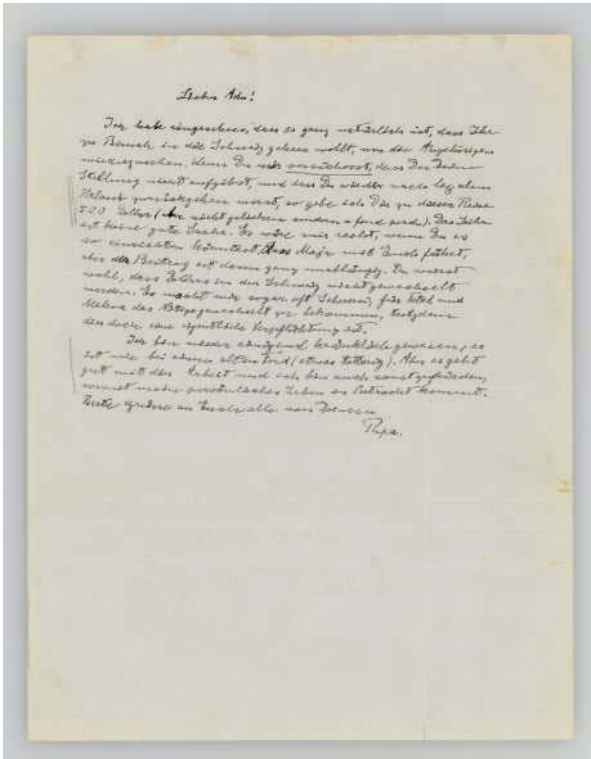 Lieber Adu!
Ich habe eingesehen, dass es ganz natürlich ist, dass Ihr
zu Besuch in die Schweiz gehen wollt, um die Angehörigen
wiederzusehen. Wenn Du mir versicherst, dass Du Deine
Stellung nicht aufgibst, und dass Du wieder nach
Urlaub zurückgehen wirst, so gebe ich Dir zu dieser Reise
500 Dollar (nicht geliehen sondern a fond perdu). Das Leihen
ist keine gute Sache. Es wäre mir recht, wenn Du es
so einrichten könntest, dass Maja mit Euch fährt,
aber der Beitrag ist davon ganz unabhängig. Du weisst
wohl, dass in der Schweiz nicht gewechselt
werden. Es macht mir sogar oft für Tetel und
Helene das gewechselt zu bekommen, trotzdem
das doch eine Verpflichtung ist.
Ich bin wieder gewesen, es
ist wie bei einem alten Ford (etwas). Aber es geht
gut mit der Arbeit und ich bin auch sonst zufrieden,
soweit mein persönliches Leben in Betracht kommt.
Beste Grüsse an Euch alle von Deinem
Papa.